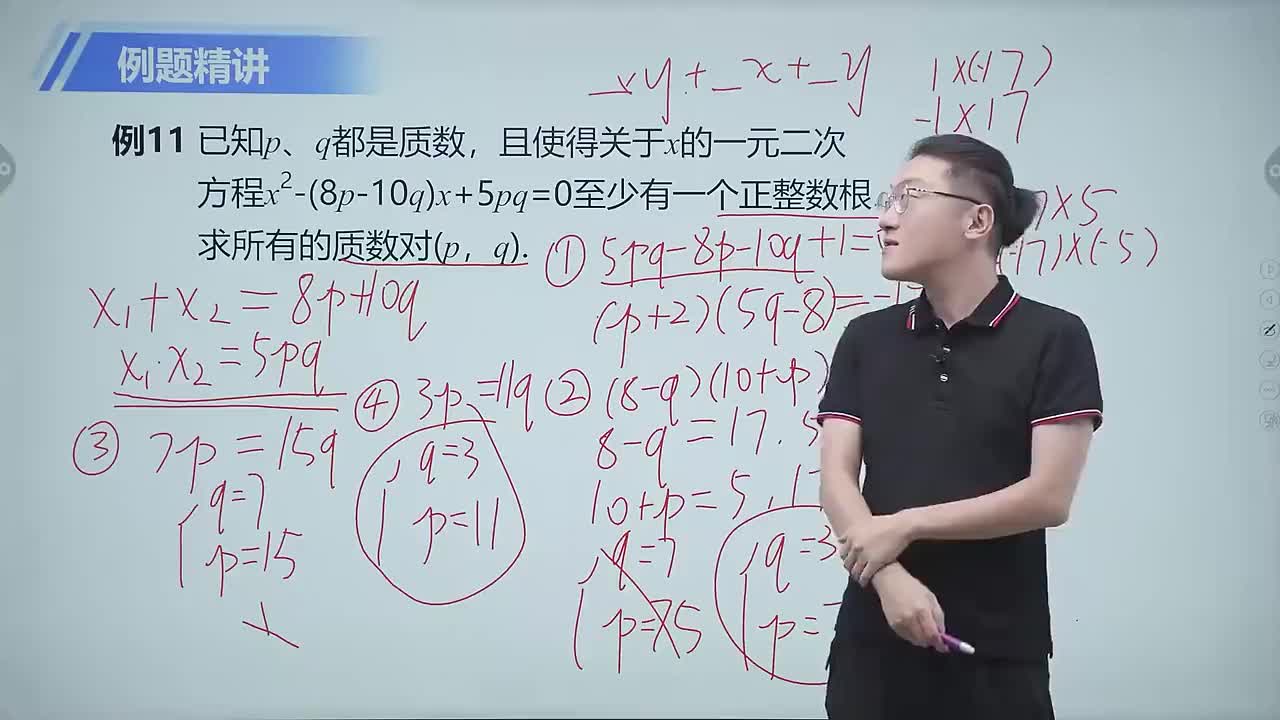 例题精讲
_xy+_x+_y
1×(-17)
-1×17
例11 已知p、q都是质数，且使得关于x的一元二次
方程x²-(8p-10q)x+5pq=0至少有一个正整数根
求所有的质数对(p，q).
x₁+x₂=8p+10q
x₁·x₂=5pq
① 5pq-8p-10q+1=
(p+2)(5q-8)=-1
×5
)×(-5)
② (8-q)(10+p)
8-q=17.5
10+p=5,1
q=7
p=75
q=3
p=
③ 7p=15q
q=7
p=15
④ 3p=11q
q=3
p=11